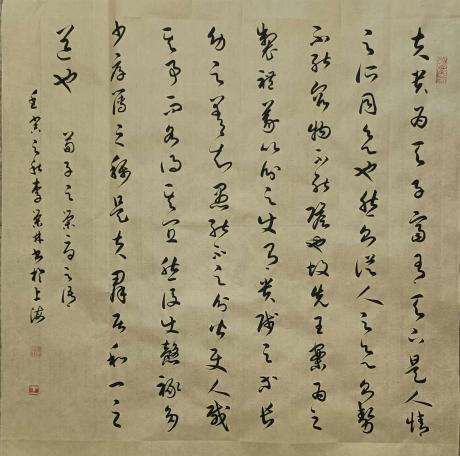 夫贵为天子富有天下是人情
之所同欲也然则从人之欲则势
不能容物不能赡也故先王案为之
製禮義以分之使有贵贱之等长
幼之差知愚能不之分皆使人载
其事而各得其宜然後使慤祿多
少厚薄之称是夫群居和一之
道也 荀子之荣辱之
壬寅之秋李荣林书於上海